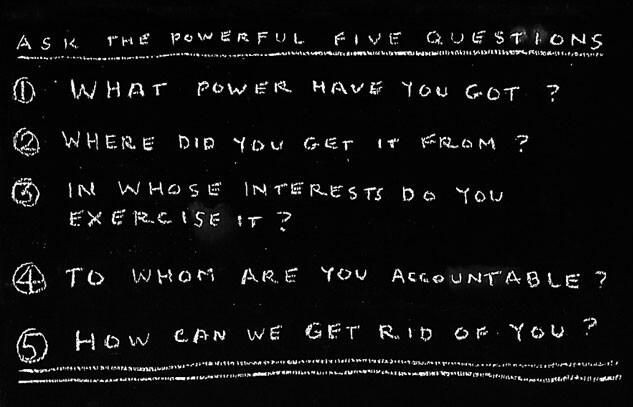 ASK THE POWERFUL FIVE QUESTIONS
① WHAT POWER HAVE YOU GOT ?
② WHERE DID YOU GET IT FROM ?
③ IN WHOSE INTERESTS DO YOU
EXERCISE IT ?
④ TO WHOM ARE YOU ACCOUNTABLE ?
⑤ HOW CAN WE GET RID OF YOU ?